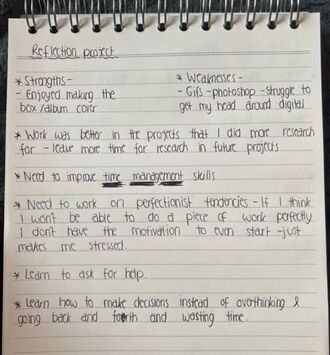 Reflection project
* Strengths -
- Enjoyed making the
box/album cover
* Weaknesses -
- Gifs - photoshop - struggle to
get my head around digital
* Work was better in the projects that I did more research
for - leave more time for research in future projects
* Need to improve time management skills
* Need to work on perfectionist tendencies - If I think
I won't be able to do a piece of work perfectly
I don't have the motivation to even start - just
makes me stressed.
* Learn to ask for help.
* Learn how to make decisions instead of overthinking &
going back and forth and wasting time.